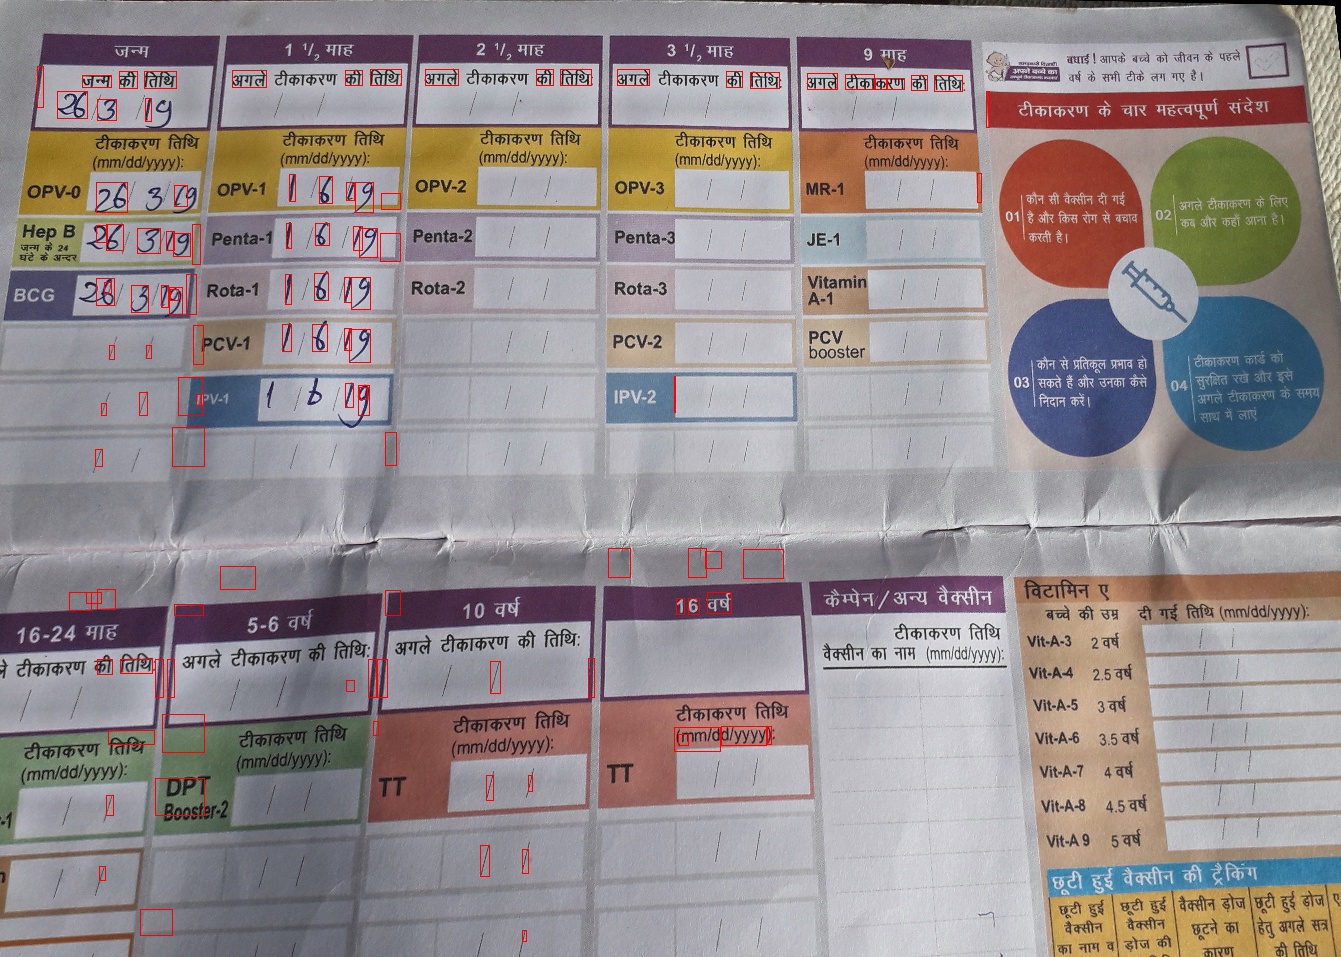 जन्म
जन्म की तिथि
26/3/19
टीकाकरण तिथि
(mm/dd/yyyy):
OPV-0 26/3/19
Hep B 26/3/19
जन्म के 24
घंटे के अन्दर
BCG 26/3/19
1 1/2 माह
अगले टीकाकरण की तिथि:
टीकाकरण तिथि
(mm/dd/yyyy):
OPV-1 1/6/19
Penta-1 1/6/19
Rota-1 1/6/19
PCV-1 1/6/19
IPV-1 1/6/19
2 1/2 माह
अगले टीकाकरण की तिथि:
टीकाकरण तिथि
(mm/dd/yyyy):
OPV-2
Penta-2
Rota-2
3 1/2 माह
अगले टीकाकरण की तिथि:
टीकाकरण तिथि
(mm/dd/yyyy):
OPV-3
Penta-3
Rota-3
PCV-2
IPV-2
9 माह
अगले टीकाकरण की तिथि:
टीकाकरण तिथि
(mm/dd/yyyy):
MR-1
JE-1
Vitamin
A-1
PCV
booster
बधाई! आपके बच्चे को जीवन के पहले
वर्ष के सभी टीके लग गए है।
टीकाकरण के चार महत्वपूर्ण संदेश
01 कौन सी वैक्सीन दी गई
है और किस रोग से बचाव
करती है।
02 अगले टीकाकरण के लिए
कब और कहाँ आना है।
03 कौन से प्रतिकूल प्रभाव हो
सकते हैं और उनका कैसे
निदान करें।
04 टीकाकरण कार्ड को
सुरक्षित रखे और इसे
अगले टीकाकरण के समय
साथ में लाएं
16-24 माह
टीकाकरण की तिथि:
टीकाकरण तिथि
(mm/dd/yyyy):
5-6 वर्ष
अगले टीकाकरण की तिथि:
टीकाकरण तिथि
(mm/dd/yyyy):
DPT
Booster-2
10 वर्ष
अगले टीकाकरण की तिथि:
टीकाकरण तिथि
(mm/dd/yyyy):
TT
16 वर्ष
टीकाकरण तिथि
(mm/dd/yyyy):
TT
कैम्पेन/अन्य वैक्सीन
टीकाकरण तिथि
वैक्सीन का नाम (mm/dd/yyyy):
विटामिन ए
बच्चे की उम्र दी गई तिथि (mm/dd/yyyy):
Vit-A-3 2 वर्ष
Vit-A-4 2.5 वर्ष
Vit-A-5 3 वर्ष
Vit-A-6 3.5 वर्ष
Vit-A-7 4 वर्ष
Vit-A-8 4.5 वर्ष
Vit-A 9 5 वर्ष
छूटी हुई वैक्सीन की ट्रैकिंग
छूटी हुई
वैक्सीन
का नाम व
छूटी हुई
वैक्सीन
डोज की
वैक्सीन डोज
छूटने का
कारण
छूटी हुई डोज
हेतु अगले सत्र
की तिथि